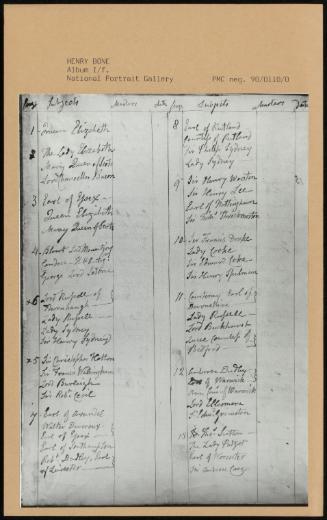 HENRY BONE
Album I/f.
National Portrait Gallery
PMC neg. 90/0110/0
Page Subjects date Page Subjects
1 Queen Elizabeth
2 The Lady Elizabeth
Mary Queen of Scots
Lord Chancellor Bacon
3 Earl of Essex
Queen Elizabeth
Mary Queen of Scots
4 Blount Lord Mountjoy
George Lord
6 Lord Russell of
Thornhaugh
Lady Russell
Lady Sydney
Sir Henry Sydney
5 Sir Christopher Hatton
Sir Francis Walsingham
Lord Burleigh
Sir Robt Cecil
7 Earl of Arundel
Walter Devereux
Earl of Essex
Earl of Southampton
Robt Dudley, Earl
of Leicester
8 Earl of Rutland
Countess of Rutland
Sir Philip Sydney
Lady Sydney
9 Sir Henry Wootton
Sir Henry Lee
Earl of Nottingham
Sir Throckmorton
10 Sir Francis Drake
Lady Coke
Sir Edward Coke
Sir Henry Spelman
11 Courtenay Earl of
Devonshire
Lady Russell
Lord Buckhurst
Lucee Countess of
Bedford
12 Ambrose Dudley
Earl of Warwick
of Warwick
Lord Ellesmere
Grimston
13 Sir Thos Sutton
The Lady Paget
Earl of Worcester
Sir Carey